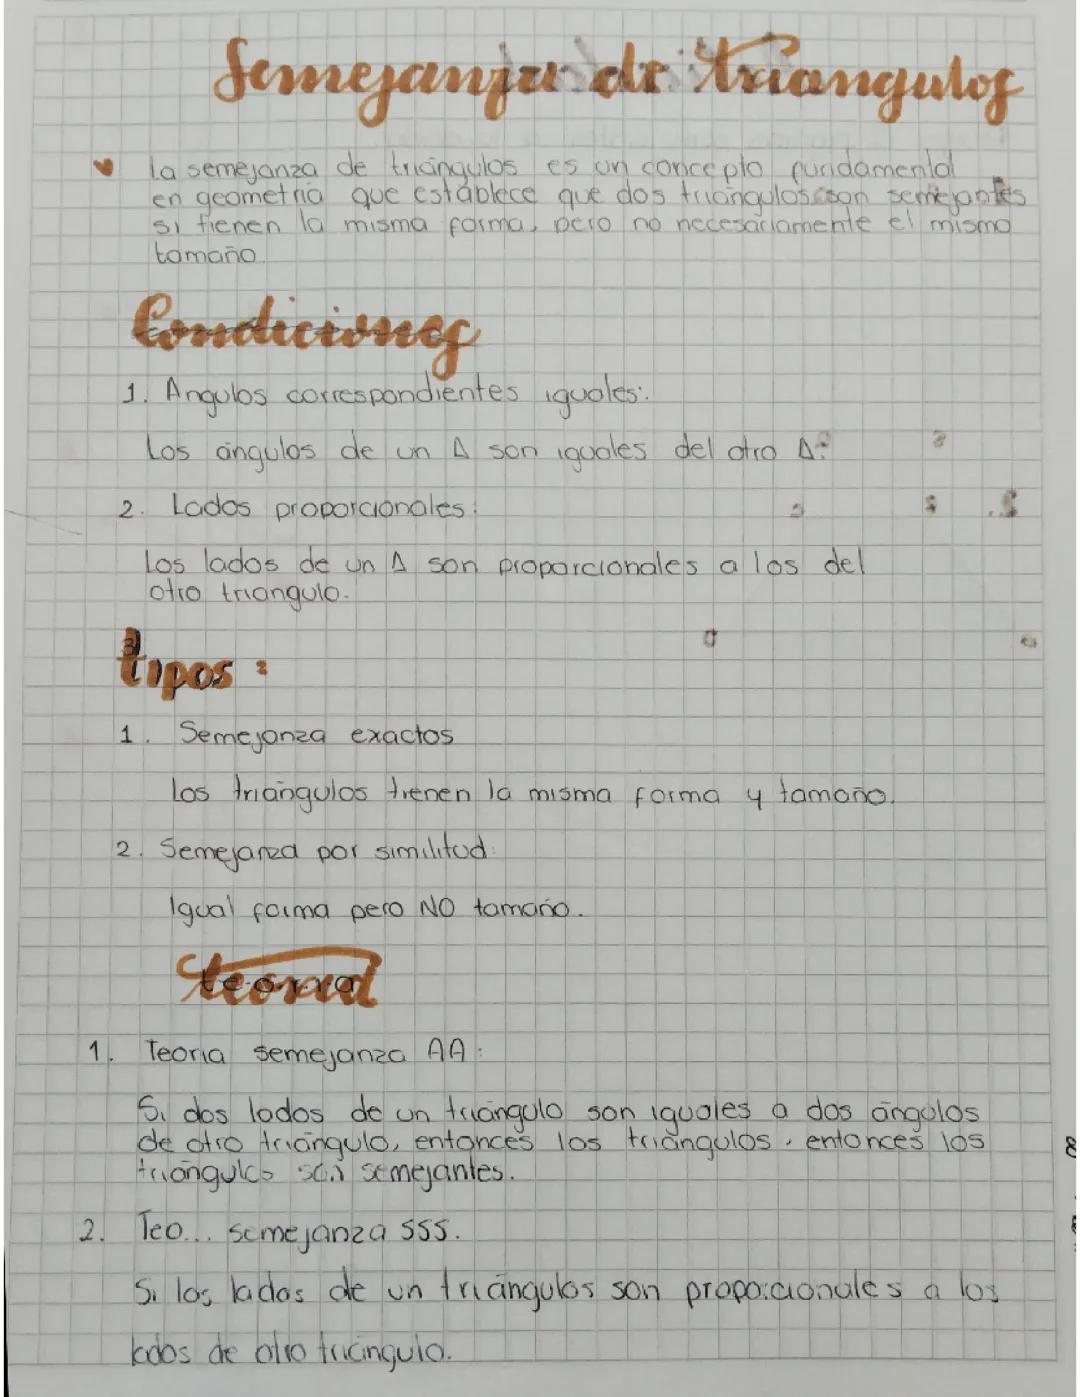 Semejanza de triangulos
La semejanza de triángulos es un concepto fundamental
en geometria que establece que dos triángulos son semejantes
si tienen la misma forma, pero no necesariamente el mismo
tamaño.
Condiciones
1. Angulos correspondientes iguales:
Los ángulos de un Δ son iguales del otro Δ.
2. Lados proporcionales:
Los lados de un Δ son proporcionales a los del
otro triangulo.
tipos:
1. Semejanza exactos
Los triángulos tienen la misma forma y tamaño.
2. Semejanza por similitud:
Igual forma pero NO tamaño.
teoria
1. Teoria semejanza AA:
Si dos lados de un triángulo son iguales a dos ángulos
de otro triángulo, entonces los triángulos, entonces los
triángulos son semejantes.
2. Teo... semejanza SSS.
Si los lados de un triángulos son proporcionales a los
lados de otro triangulo.